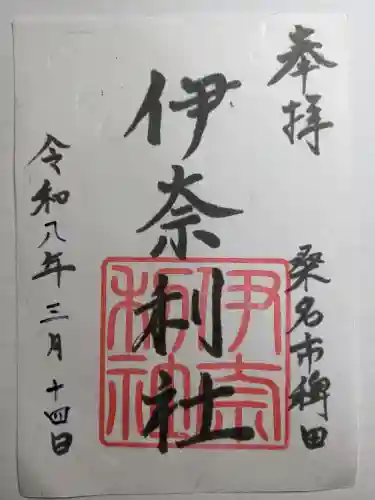 奉拝
桑名市稗田
伊奈利社
伊奈
利社
令和八年三月十四日